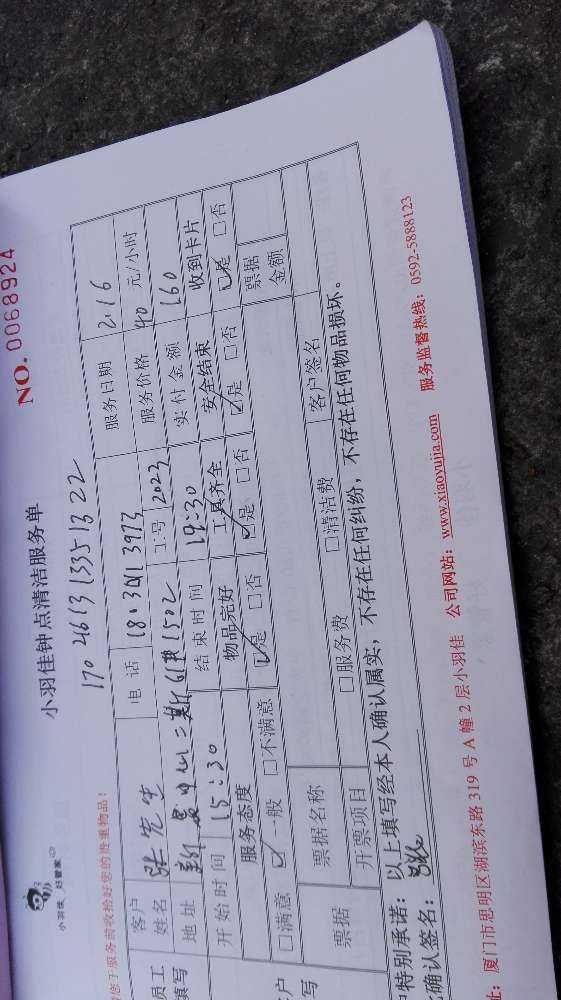 小羽佳 好管家
小羽佳钟点清洁服务单
NO. 0068924
您于服务前收拾好您的贵重物品!
170 4613 1335 1322
员工填写
客户姓名 张先生 电话 服务日期 2.16
地址 工号 2023 服务价格 40 元/小时
1502 实付金额 160
开始时间 15:30 结束时间 19:30
服务态度 物品完好 工具齐全 安全结束 收到卡片
□满意 ☑一般 □不满意 ☑是 □否 ☑是 □否 ☑是 □否 ☑是 □否
户
写
票据 票据名称 票据金额
开票项目 □服务费 □清洁费 客户签名
特别承诺:以上填写经本人确认属实,不存在任何纠纷,不存在任何物品损坏。
确认签名:
址:厦门市思明区湖滨东路 319 号 A 幢 2 层小羽佳 公司网站:www.xiaoyujia.com 服务监督热线:0592-5888123